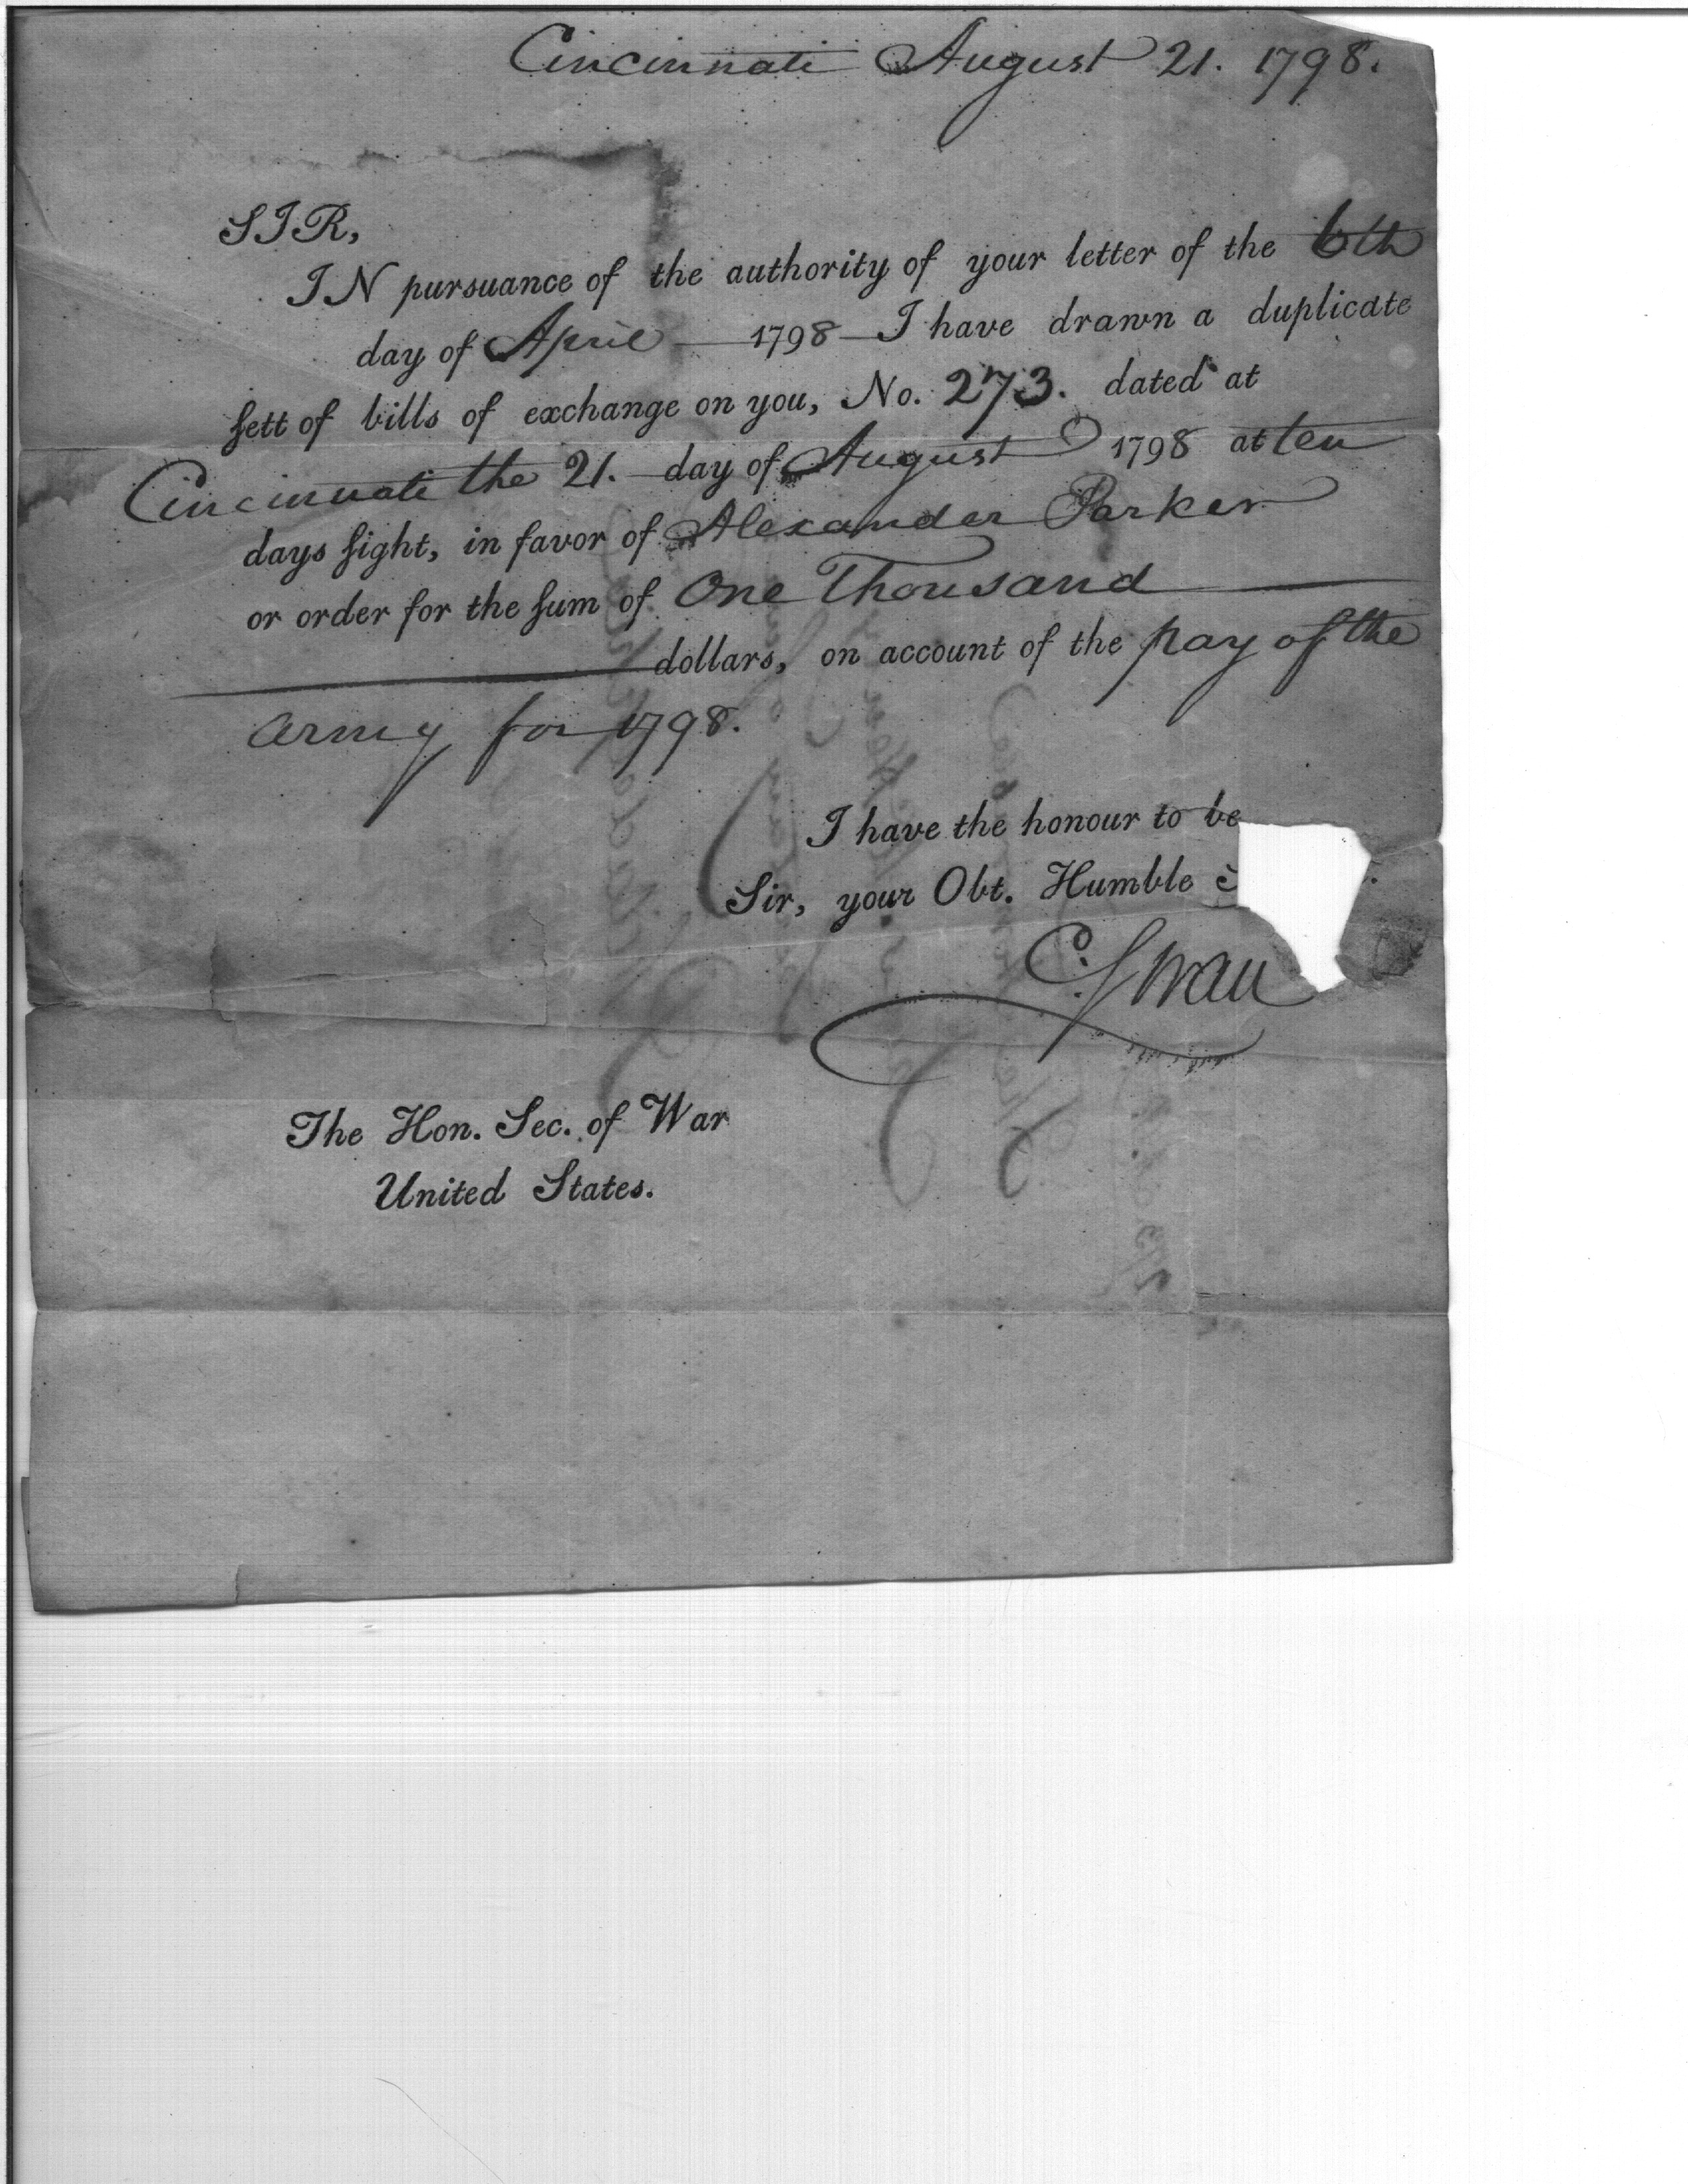 Cincinnati August 21. 1798.
SIR,
IN pursuance of the authority of your letter of the 6th
day of April 1798 I have drawn a duplicate
ſett of bills of exchange on you, No. 273. dated at
Cincinnati the 21. day of August 1798 at ten
days ſight, in favor of Alexander Parker
or order for the ſum of One Thousand
dollars, on account of the pay of the
army for 1798.
I have the honour to be
Sir, your Obt. Humble
C. Swan
The Hon. Sec. of War
United States.